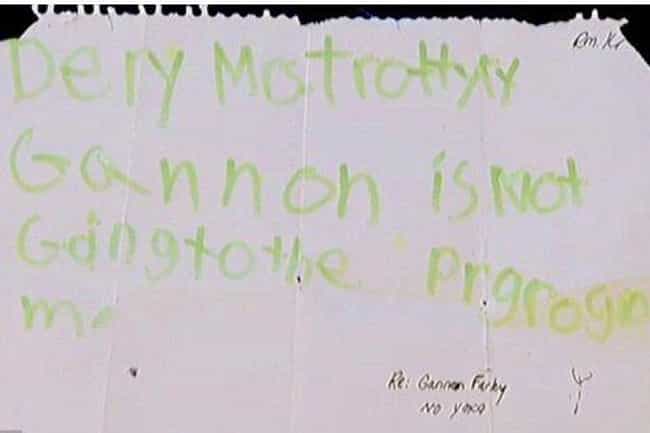 Rm. K1
Dery Mrstrottyyy
Gannon is Not
Gaingtothe prgrogm
me
Re: Gannon Farhy
NO YMCA